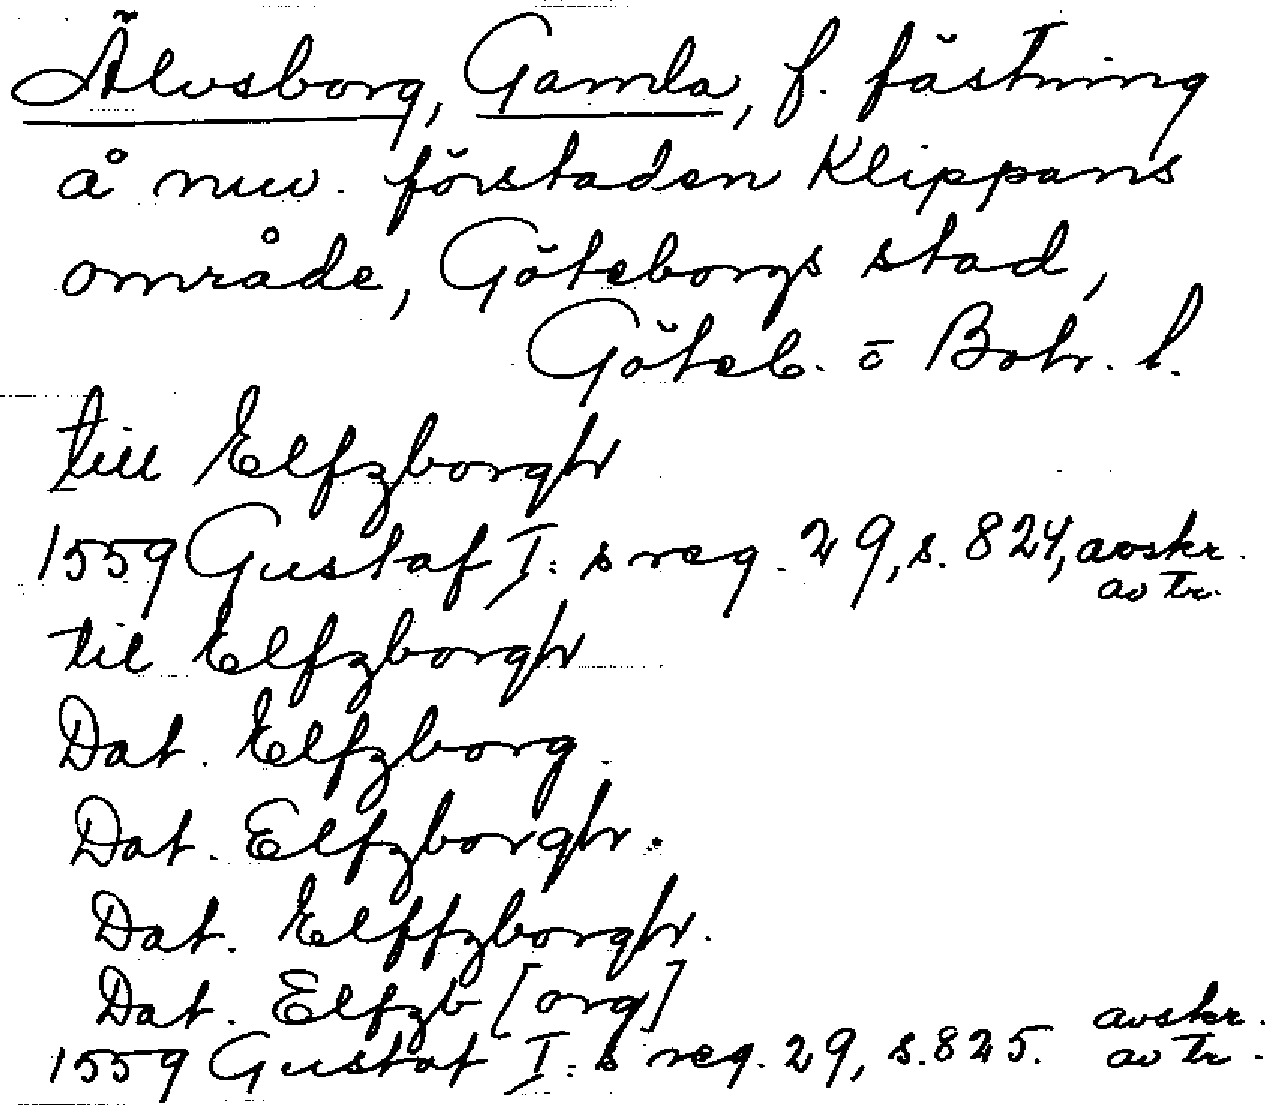 Älvsborg, Gamla, f. fästning
å nuv. förstaden Klippans
område, Göteborgs stad,
Göteb. o Boh. l.
till Elfzborgh
1559 Gustaf I:s reg. 29, s. 824, avskr.
av tr.
til Elfzborgh
Dat. Elfzborg
Dat. Elfzborgh.
Dat. Elffzborgh.
Dat. Elfzb [org]
1559 Gustaf I:s reg. 29, s. 825. avskr.
av tr.